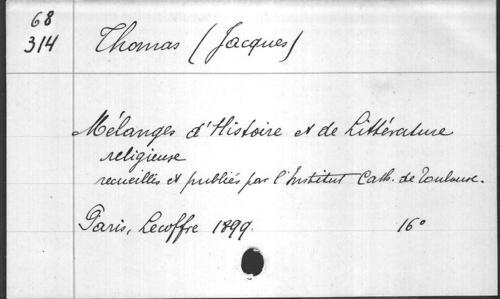 68
314
Thomas (Jacques)
Mélanges d'Histoire et de Littérature
religieuse
recueillis et publiés par l'Institut Cath. de Toulouse.
Paris, Lecoffre 1899. 16°